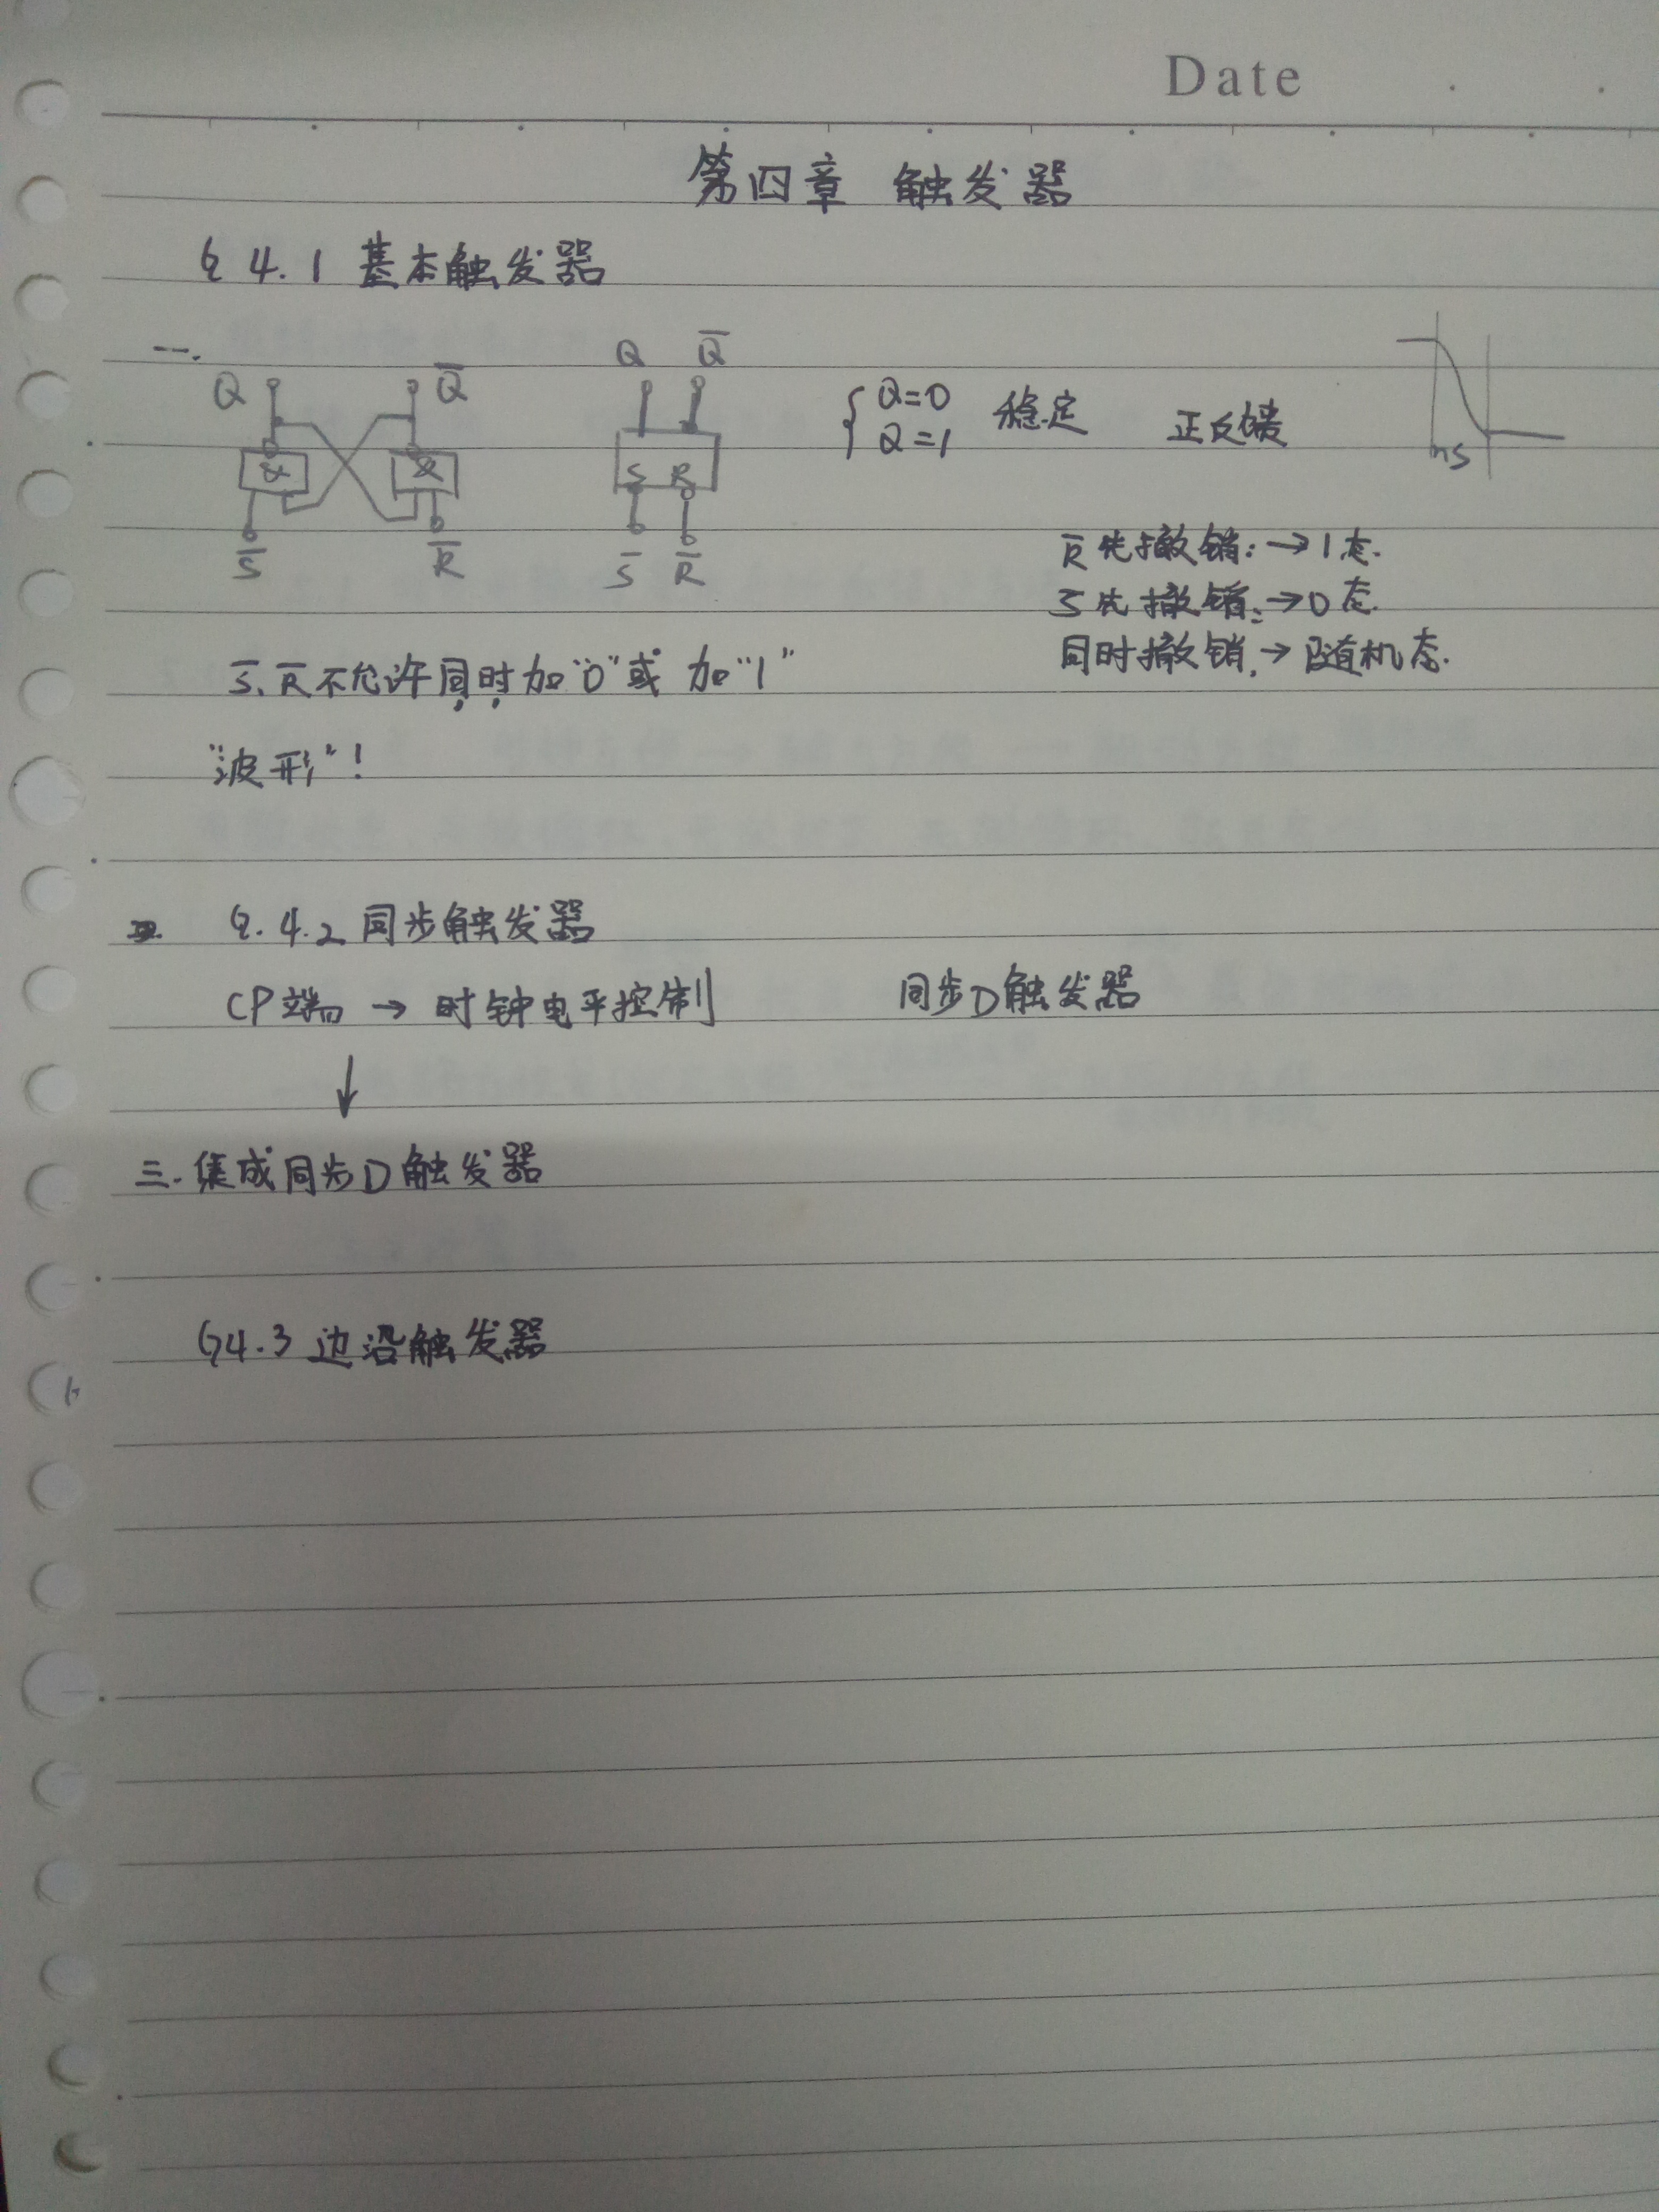 Date
第四章 触发器
§4.1 基本触发器
一.
Q Q̅ Q Q̅
& &
S R
S̅ R̅ S̅ R̅
{ Q=0
Q=1 稳定 正反馈
ns
R̅先撤销: →1态.
S̅先撤销: →0态.
同时撤销, →随机态.
S̅、R̅不允许同时加"0"或 加"1"
"波形"!
§.4.2 同步触发器
CP端 → 时钟电平控制 同步D触发器
↓
三.集成同步D触发器
§4.3 边沿触发器